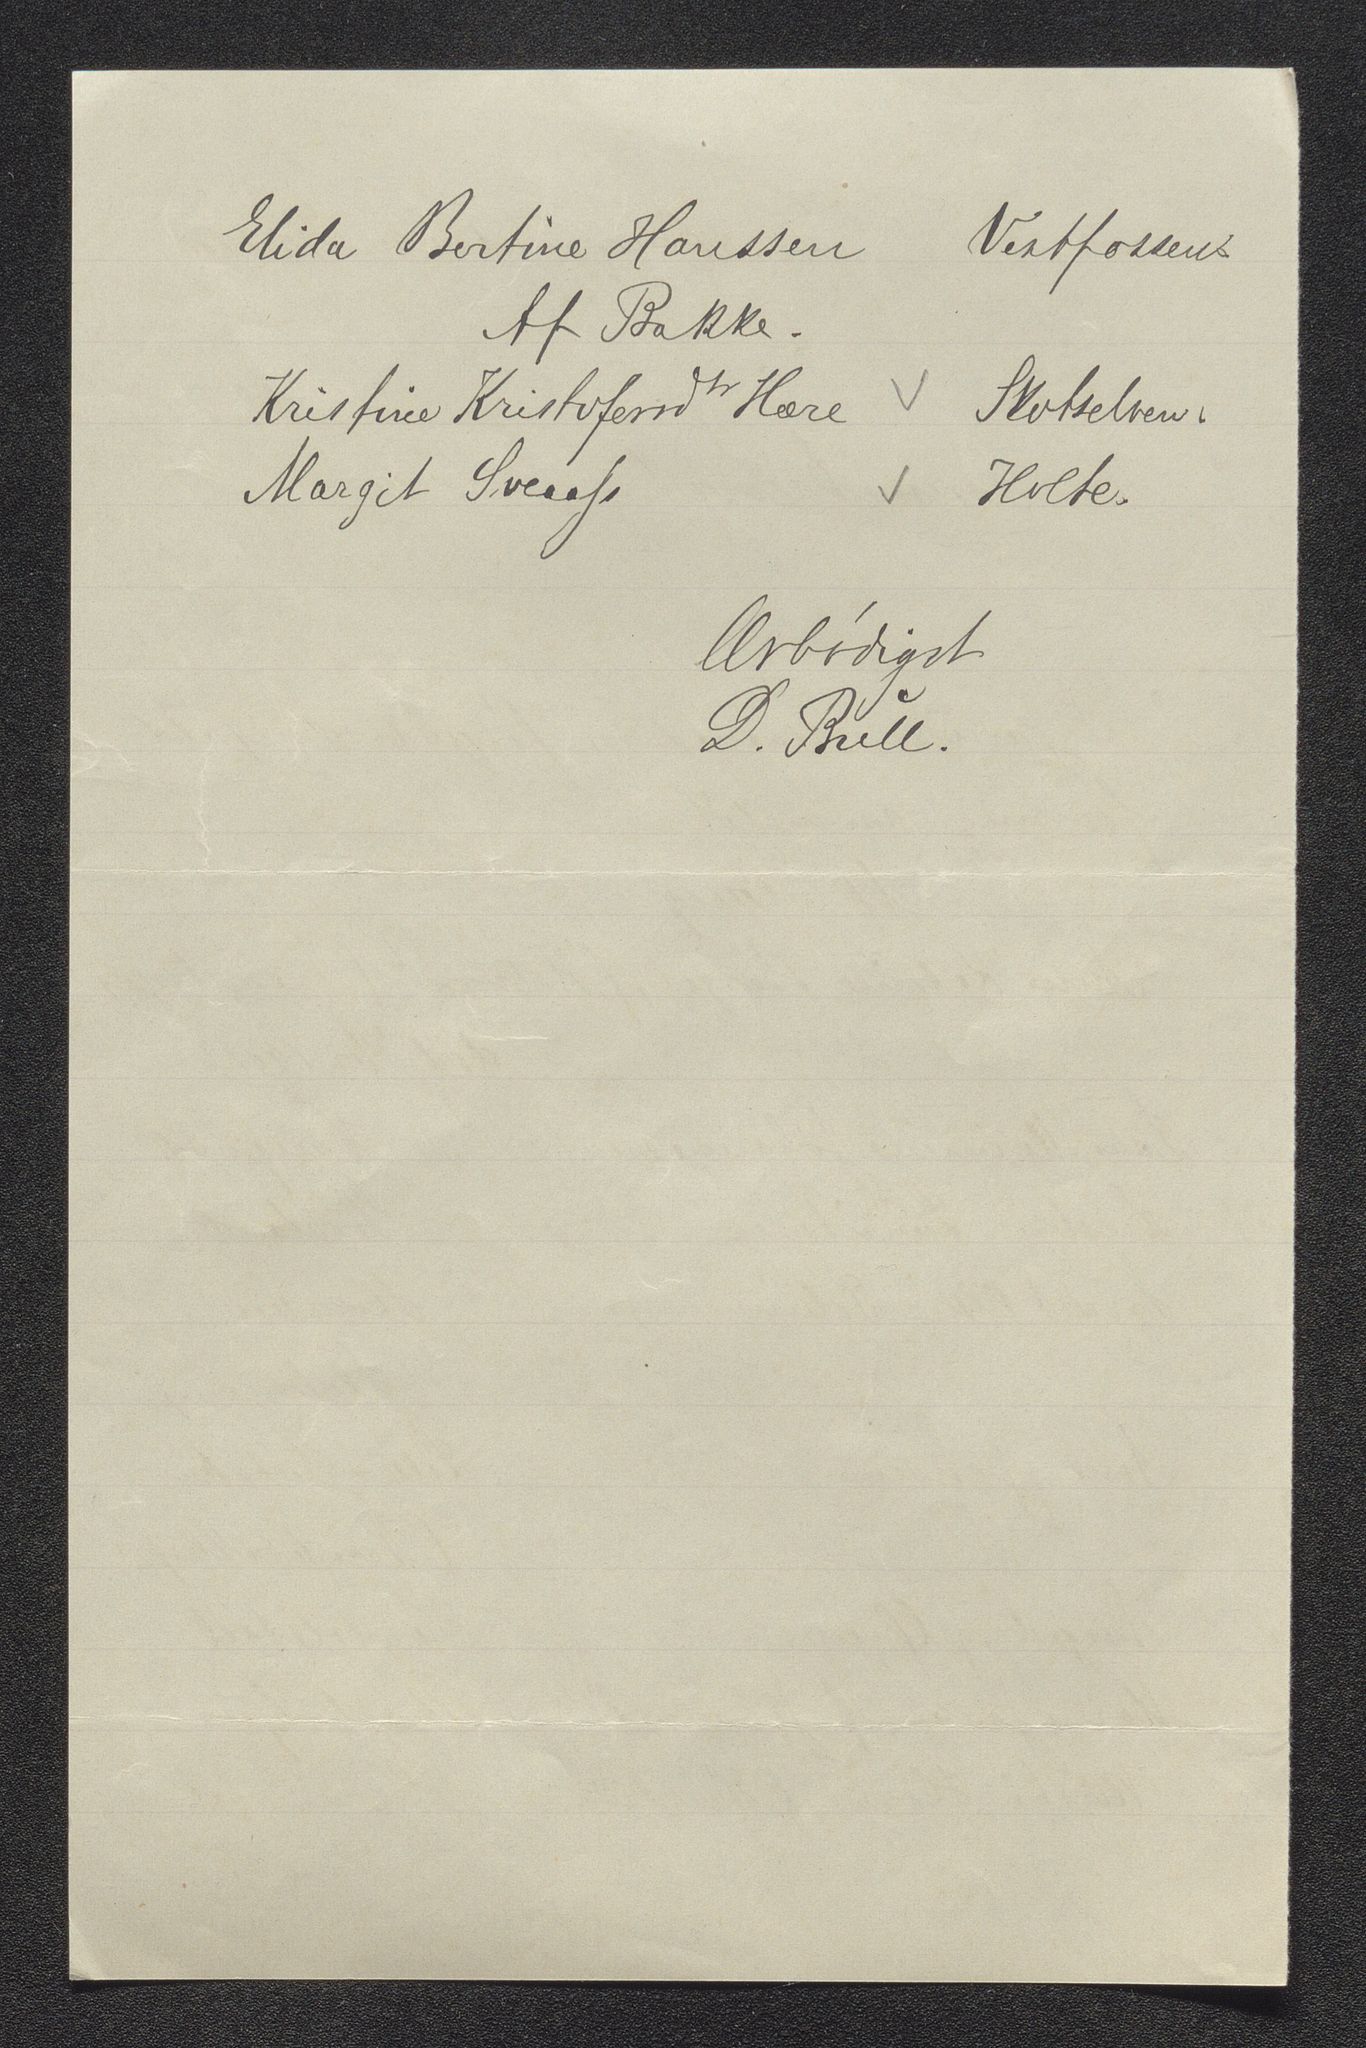 Elida Bertine Hanssen Vestfossen.
Af Bakke.
Kristine Kristofersdtr Hære V Skotselven.
Margit Sveaass V Holte.
Ærbødigst
D. Bull.